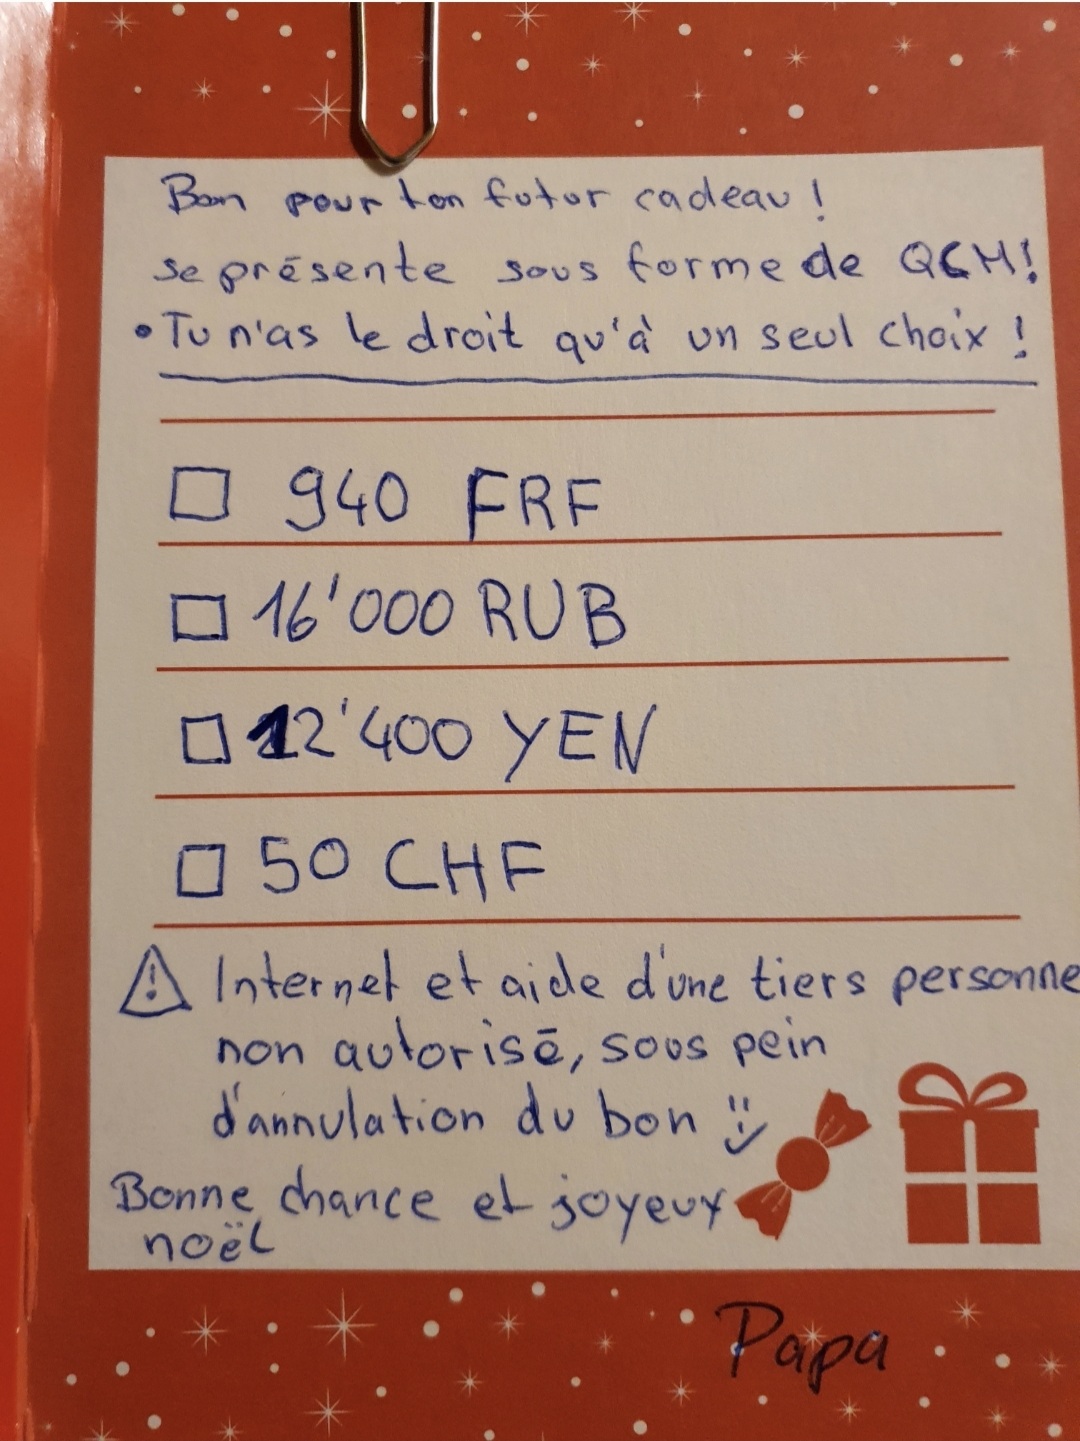 Bon pour ton futur cadeau !
se présente sous forme de QCM!
• Tu n'as le droit qu'à un seul choix !
☐ 940 FRF
☐ 16'000 RUB
☐ 12'400 YEN
☐ 50 CHF
⚠ Internet et aide d'une tiers personne
non autorisé, sous pein
d'annulation du bon
Bonne chance et joyeux
noël
Papa